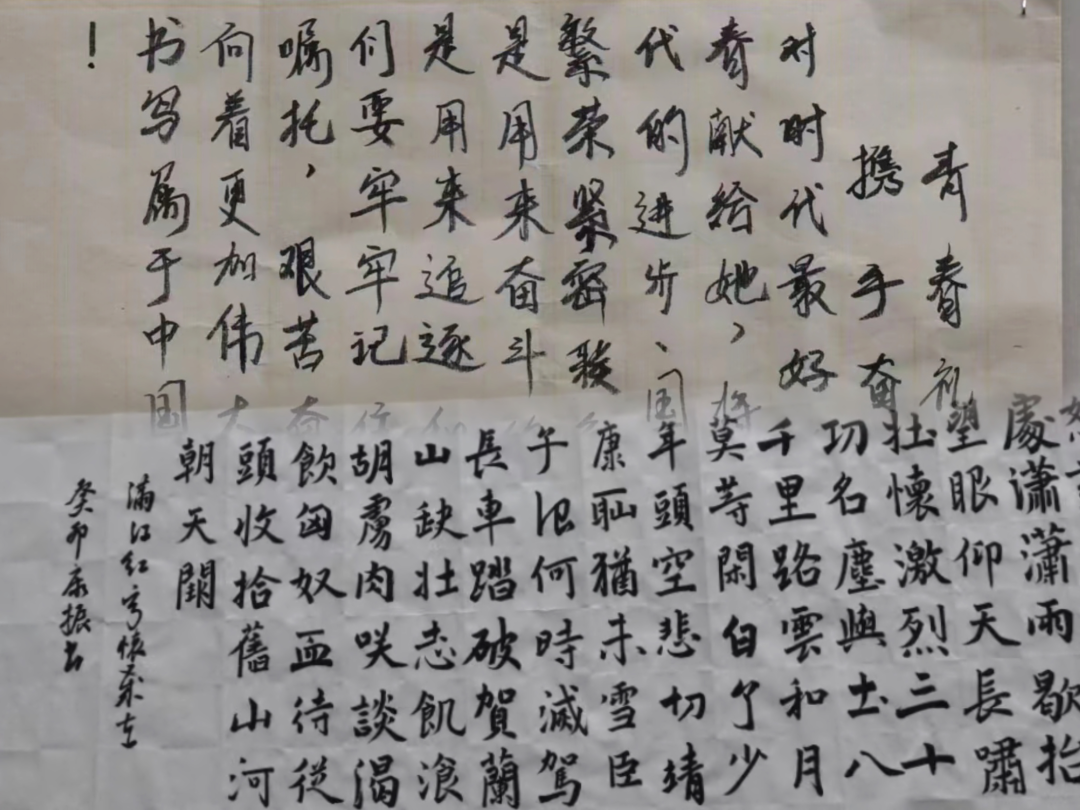 青春祝
携手奋
对时代最好
春献给她，将
代的进步、国
繁荣紧密联
是用来奋斗
是用来追逐
们要牢牢记
嘱托，艰苦奋
向着更加伟大
书写属于中国
！
處瀟瀟雨歇抬
望眼仰天長嘯
壮懷激烈三十
功名塵與土八
千里路雲和月
莫等閑白了少
年頭空悲切靖
康恥猶未雪臣
子恨何時滅駕
長車踏破賀蘭
山缺壮志飢湌
胡虜肉咲談渴
飲匈奴血待從
頭收拾舊山河
朝天闕
满江红写怀
癸卯康振书